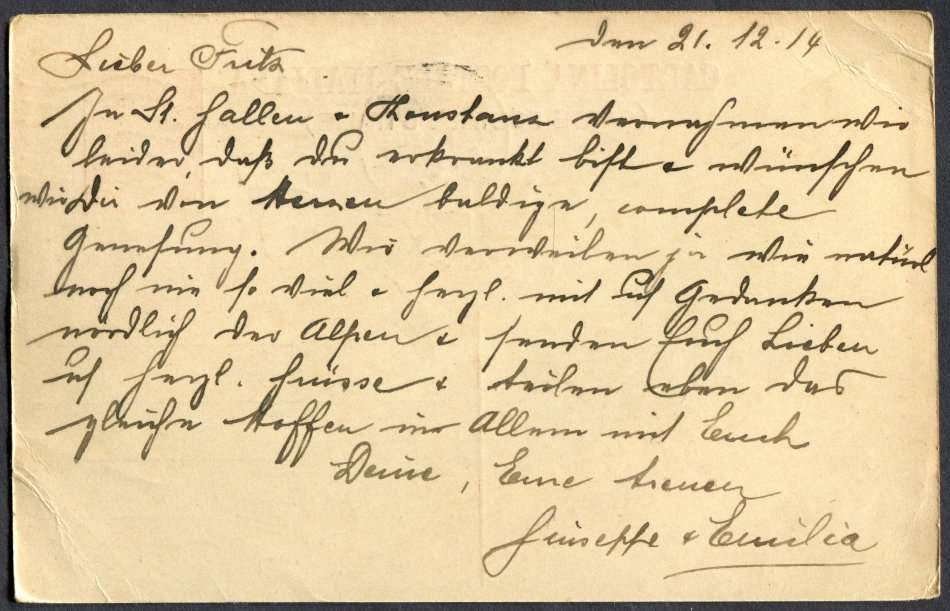 den 21. 12. 14
Lieber Fritz
In St. Gallen & Konstanz vernahmen wir
leider, daß du erkrankt bist & wünschen
wir Dir von Herzen baldige, complete
Genesung. Wir verweilen ja wie natürl
noch nie so viel & herzl. mit uns Gedanken
nördlich der Alpen & senden Euch Lieben
herzl. Grüsse & teilen eben das
gleiche Hoffen in Allem mit Euch
Deine, Eure treuen
Giuseppe & Emilia